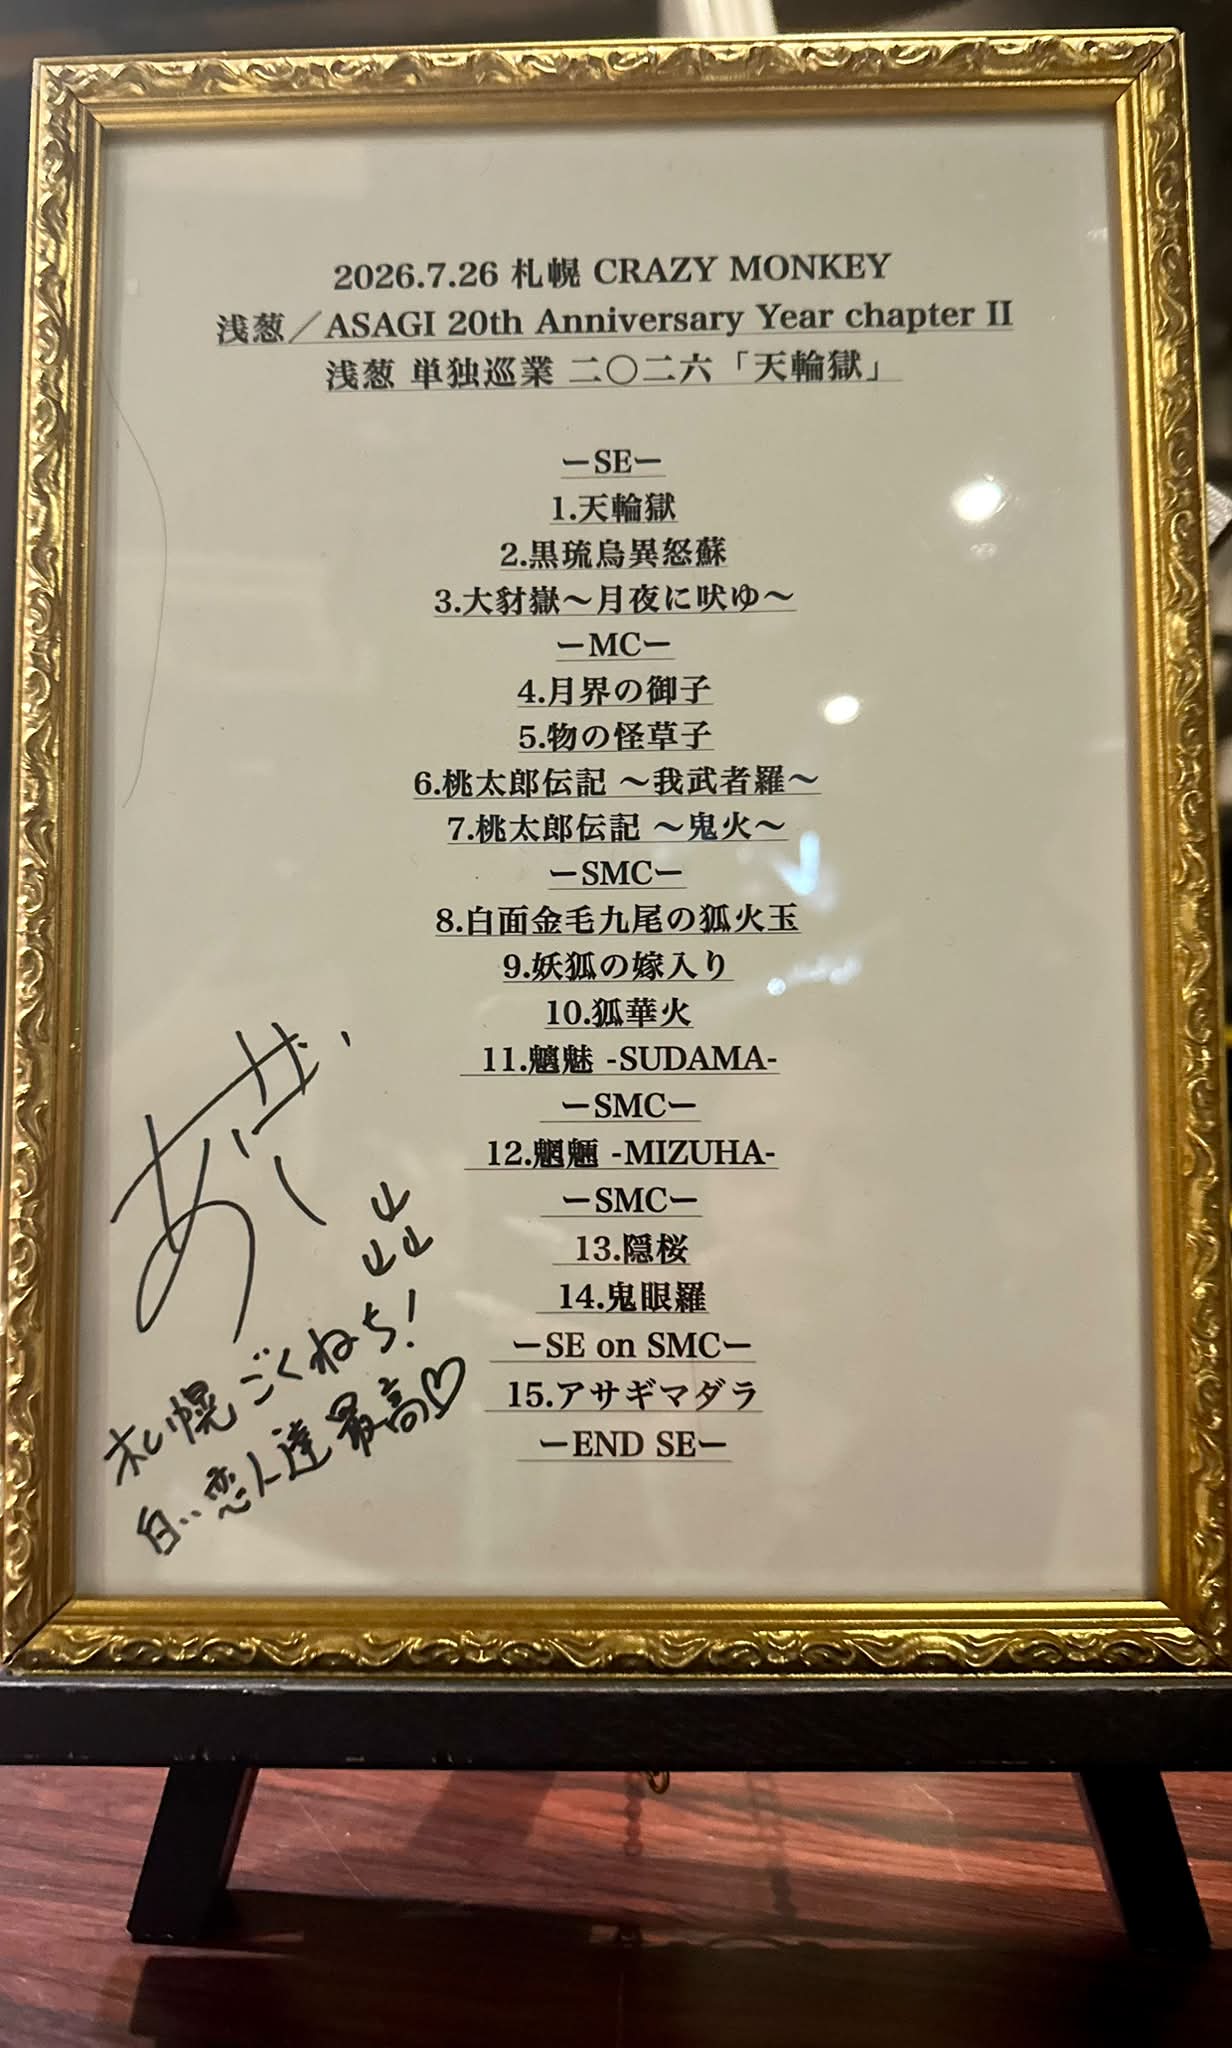 2026.7.26 札幌 CRAZY MONKEY
浅葱／ASAGI 20th Anniversary Year chapter II
浅葱 単独巡業 二〇二六「天輪獄」
ーSEー
1.天輪獄
2.黒琉烏異怒蘇
3.大豺嶽〜月夜に吠ゆ〜
ーMCー
4.月界の御子
5.物の怪草子
6.桃太郎伝記 〜我武者羅〜
7.桃太郎伝記 〜鬼火〜
ーSMCー
8.白面金毛九尾の狐火玉
9.妖狐の嫁入り
10.狐華火
11.魑魅 -SUDAMA-
ーSMCー
12.魍魎 -MIZUHA-
ーSMCー
13.隠桜
14.鬼眼羅
ーSE on SMCー
15.アサギマダラ
ーEND SEー
札幌ごくねち!
白い恋人達最高♡